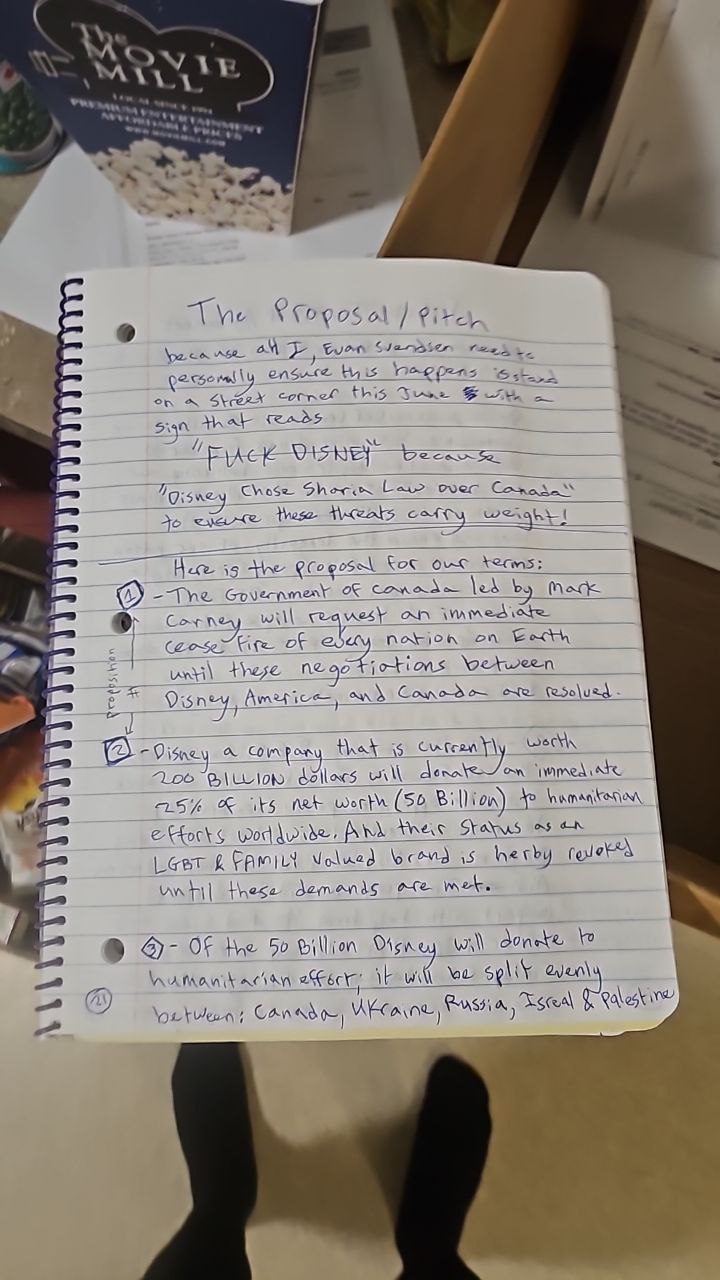 The
MOVIE
MILL
LOCAL SINCE 1994
PREMIUM ENTERTAINMENT
AFFORDABLE PRICES
The Proposal/Pitch
because all I, Evan Svendsen need to
personally ensure this happens is stand
on a street corner this June with a
sign that reads
"FUCK DISNEY" because
"Disney Chose Sharia Law over Canada"
to ensure these threats carry weight!
Here is the proposal for our terms:
1 - The Government of Canada led by Mark
Carney will request an immediate
cease fire of every nation on Earth
until these negotiations between
Disney, America, and Canada are resolved.
proposition #
2 - Disney a company that is currently worth
200 BILLION dollars will donate an immediate
25% of its net worth (50 Billion) to humanitarian
efforts worldwide. And their status as an
LGBT & FAMILY valued brand is herby revoked
until these demands are met.
3 - Of the 50 Billion Disney will donate to
humanitarian effort; it will be split evenly
between: Canada, Ukraine, Russia, Isreal & Palestine
21